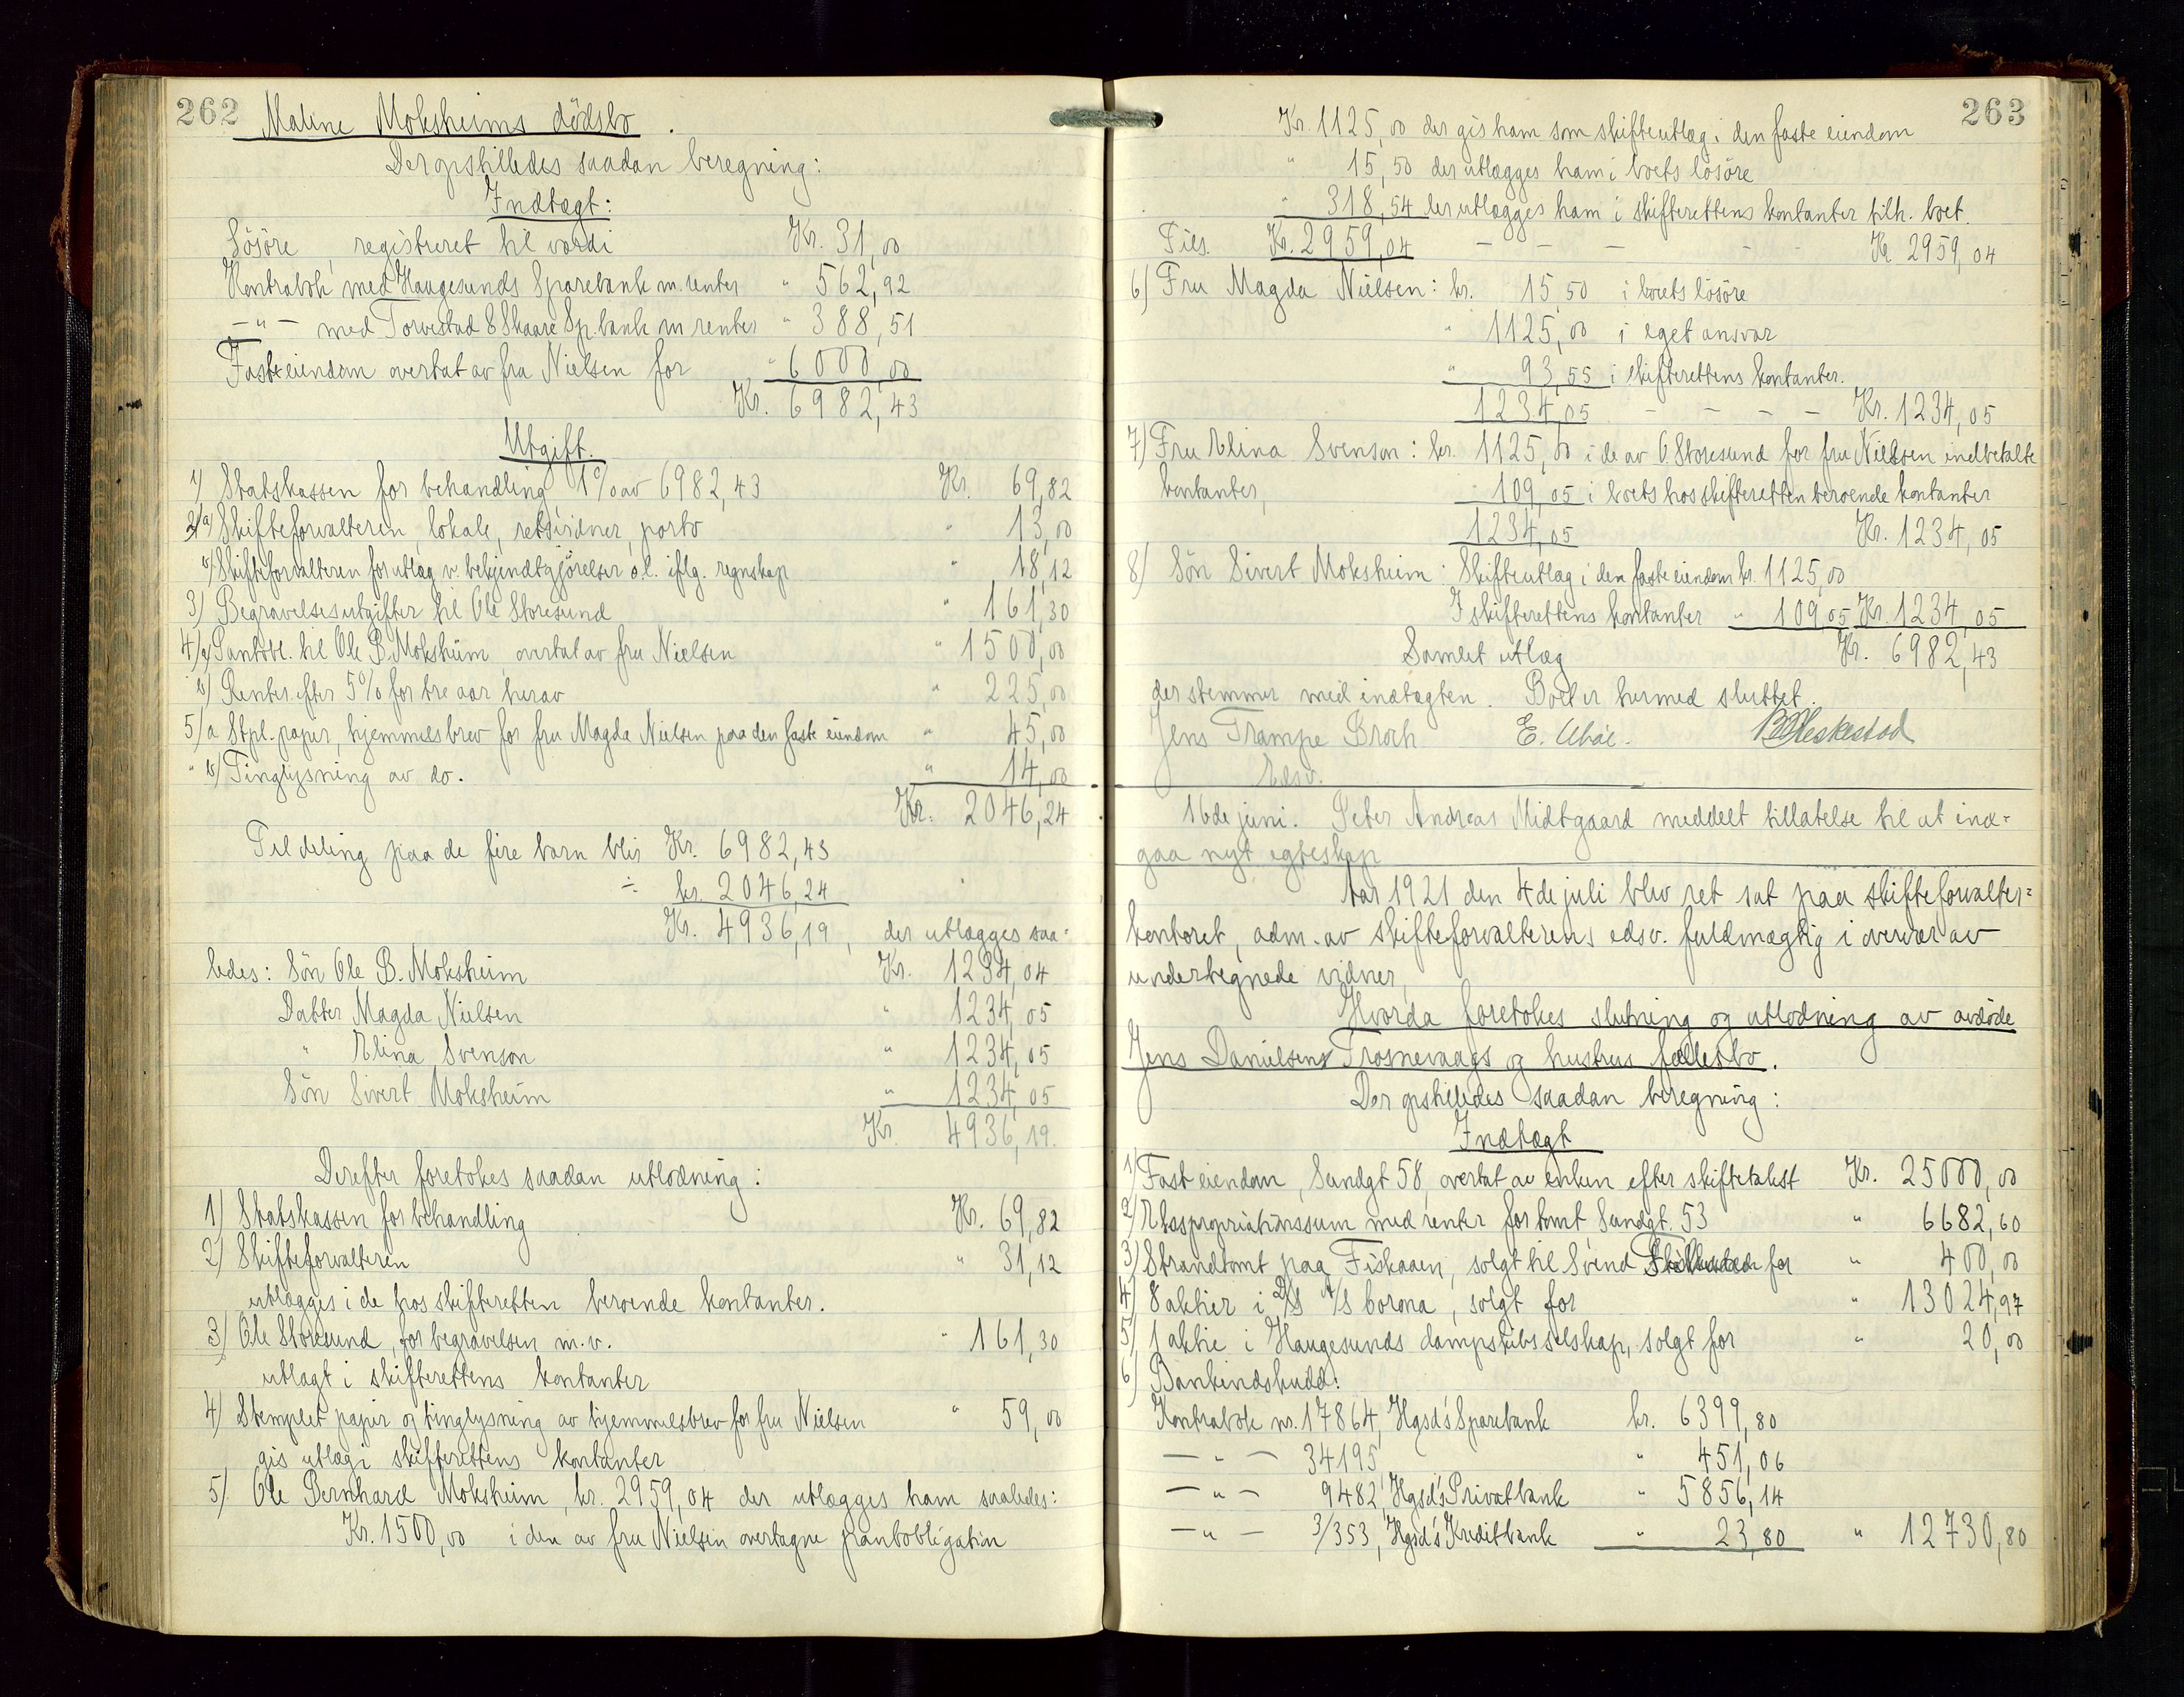 262 Maline Moksheims dödsbo.
Der opstilledes saadan beregning:
Indtægt:
Lösöre, registreret til værdi Kr. 31,00
Kontrabok med Haugesunds Sparebank m. renter " 562,92
—"— med Torvestad & Skaare Sp.bank m renter " 388,51
Fast eiendom overtat av fru Nielsen for " 6000,00
Kr. 6982,43
Utgift.
1) Statskassen for behandling 1% av 6982,43 Kr. 69,82
2/a) Skifteforvalteren, lokale, retsvidner, porto " 13,00
b) Skifteforvalteren for utlæg v. bekjendtgjörelser o.l. iflg. regnskap " 18,12
3) Begravelsesutgifter til Ole Storesund " 161,30
4/a) Pantobl. til Ole B. Moksheim overtat av fru Nielsen " 1500,00
" b) Renter efter 5% for tre aar herav " 225,00
5/a Stpl. papir, hjemmelsbrev for fru Magda Nielsen paa den faste eiendom " 45,00
" b) Tinglysning av do. " 14,00
Kr. 2046,24
Til deling paa de fire barn blir Kr. 6982,43
÷ kr. 2046,24
Kr. 4936,19, der utlægges saa-
ledes: Sön Ole B. Moksheim Kr. 1234,04
Datter Magda Nielsen " 1234,05
" Elina Svenson " 1234,05
Sön Sivert Moksheim " 1234,05
Kr. 4936,19.
Derefter foretokes saadan utlodning:
1) Statskassen for behandling Kr. 69,82
2) Skifteforvalteren " 31,12
utlægges i de hos skifteretten beroende kontanter.
3) Ole Storesund, for begravelsen m.v. " 161,30
utlagt i skifterettens kontanter
4) Stemplet papir og tinglysning av hjemmelsbrev for fru Nielsen " 59,00
gis utlæg i skifterettens kontanter
5) Ole Bernhard Moksheim, kr. 2959,04 der utlægges ham saaledes:
Kr. 1500,00 i den av fru Nielsen overtagne pantobligation
263
Kr. 1125,00 der gis ham som skifteutlæg i den faste eiendom
" 15,50 der utlægges ham i boets lösöre
" 318,54 der utlægges ham i skifterettens kontanter tilh. boet.
Tils. Kr. 2959,04 — — — — — Kr 2959,04
6) Fru Magda Nielsen: kr. 15,50 i boets lösöre
" 1125,00 i eget ansvar
" 93,55 i skifterettens kontanter.
1234,05 — — — — Kr. 1234,05
7) Fru Elina Svenson: kr. 1125,00 i de av O. Storesund for fru Nielsen indbetalte
kontanter, " 109,05 i boets hos skifteretten beroende kontanter
1234,05 Kr. 1234,05
8) Sön Sivert Moksheim: Skifteutlæg i den faste eiendom kr. 1125,00
I skifterettens kontanter " 109,05 Kr. 1234,05
Samlet utlæg Kr. 6982,43
der stemmer med indtægten. Boet er hermed sluttet.
Jens Trampe Broch E.
Edsv.
16de juni. Peter Andreas Midtgaard meddelt tillatelse til at ind-
gaa nyt egteskap
Aar 1921 den 4de juli blev ret sat paa skifteforvalter-
kontoret, adm. av skifteforvalterens edsv. fuldmægtig i overvær av
undertegnede vidner,
Hvorda foretokes slutning og utlodning av avdöde
Jens Danielsens Trosnevaags og hustrus fællesbo.
Der opstilledes saadan beregning:
Indtægt
1) Fast eiendom, Sundgt 58, overtat av enken efter skiftetakst Kr. 25000,00
2) Ekspropriationssum med renter for tomt Sundgt. 53 " 6682,60
3) Strandtomt paa Fiskaaen, solgt til Svend for " 400,00
4) 8 aktier i D/S A/S Corona, solgt for " 13024,97
5) 1 aktie i Haugesunds dampskibsselskap, solgt for " 20,00
6) Bankindskudd:
Kontrabok nr. 17864, Hgsd's Sparebank kr. 6399,80
—"— 34195 " 451,06
—"— 9482, Hgsd's Privatbank " 5856,14
—"— 3/353, Hgsd's Kreditbank " 23,80 " 12730,80